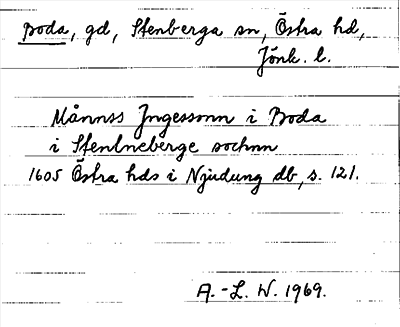 Boda, gd, Stenberga sn, Östra hd,
Jönk. l.
Månnss Jngessonn i Boda
i Stentneberge sochnn
1605 Östra hds i Njudung db, s. 121.
A.-L. W. 1969.